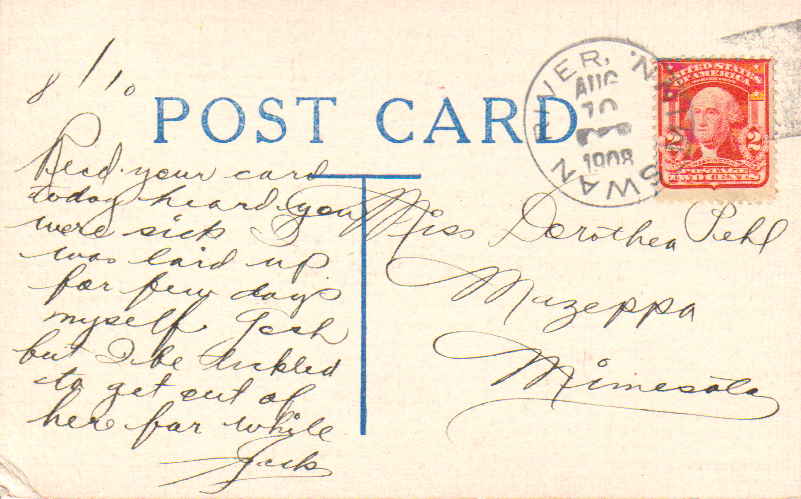 8/10
POST CARD
Recd your card
today heard you
were sick I
was laid up
for few days
myself Gosh
but I be tickled
to get out of
here for while
Jack
Miss Dorothea Pehl
Mazeppa
Minnesota
SWAN RIVER, MINN.
AUG
10
1908
UNITED STATES
OF AMERICA
2 2
TWO CENTS